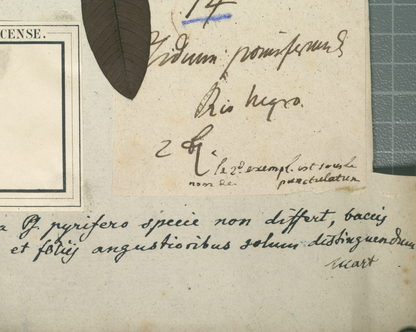 CENSE.
14
Psidium pomiferum
Rio Negro.
2
le 2e exempl. est sous le
nom de punctulatum
a P. pyrifero specie non differt, baccis
et foliis angustioribus solum distinguendum